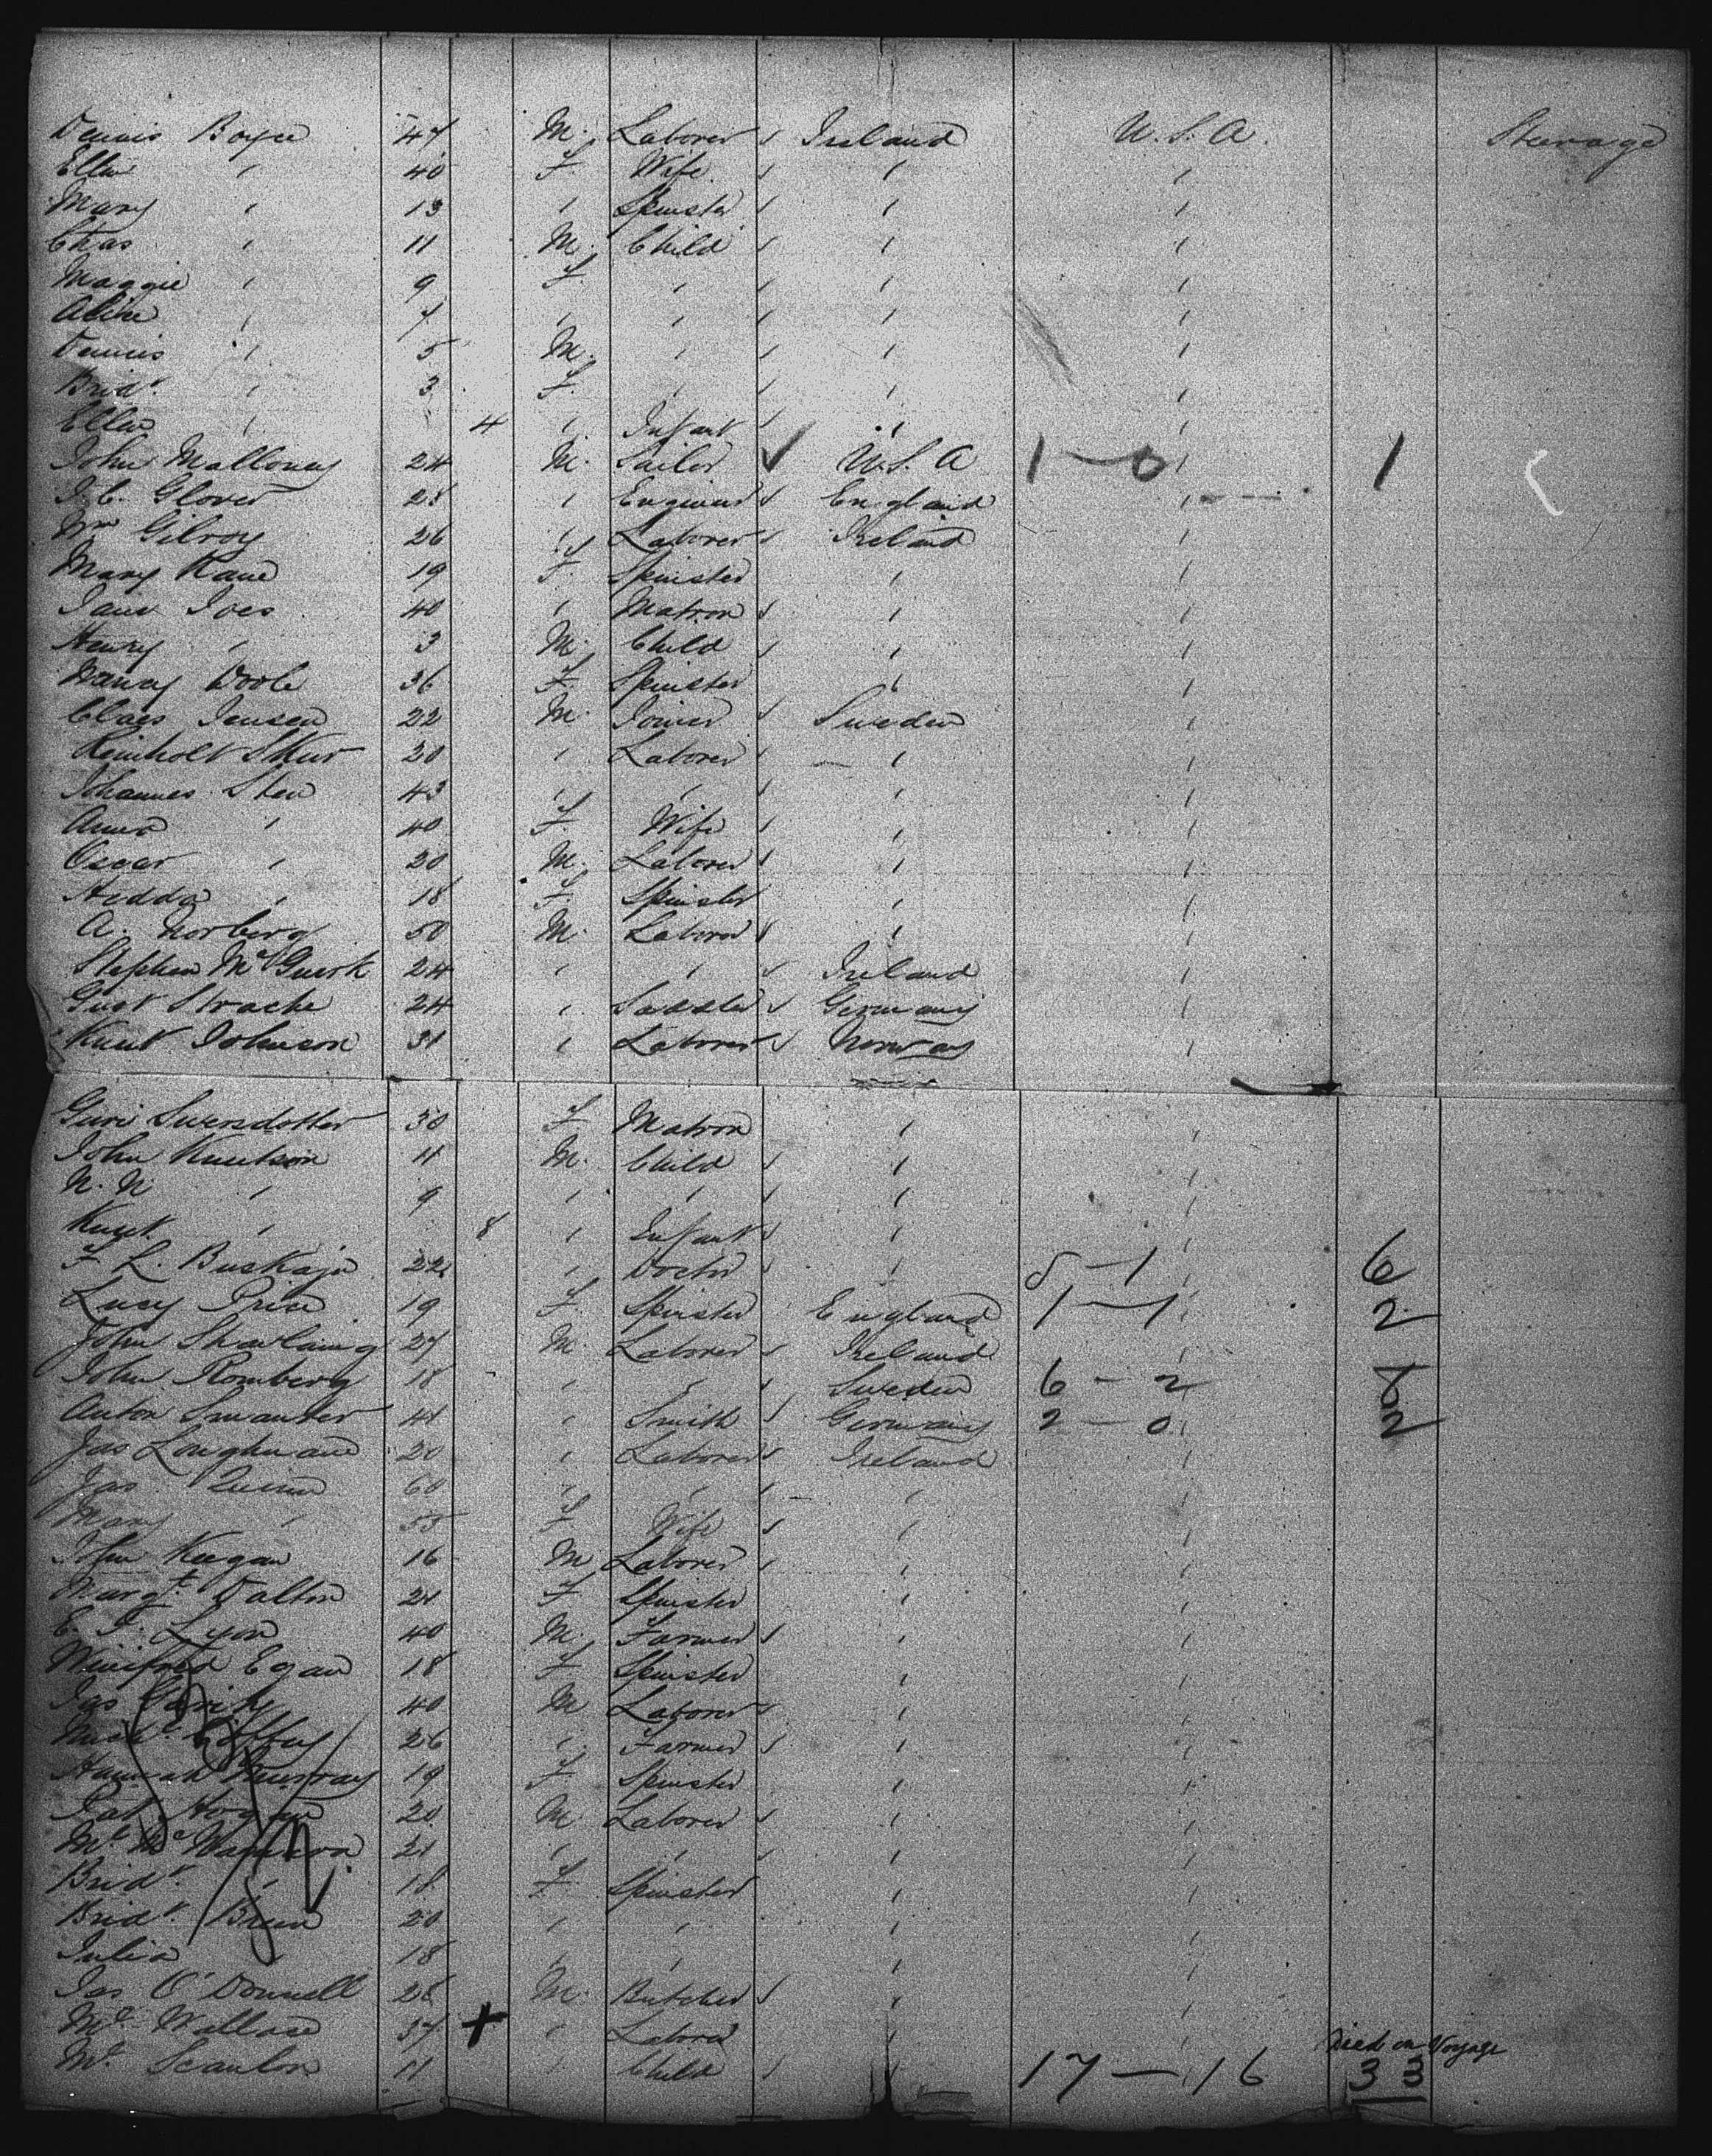 Dennis Boyce 47 M. Laborer Ireland U.S.A. Steerage
Ellen " 40 F. Wife " "
Mary " 13 " Spinster " "
Chas " 11 M. Child " "
Maggie " 9 F. " " "
Alice " 7 " " " "
Dennis " 5 M. " " "
Bridt " 3 F. " " "
Ellen " 4 " Infant " "
John Malloney 24 M. Sailor U.S.A 1 — 0 " 1
J. C. Glover 28 " Engineer England "
Wm Gilroy 26 " Laborer Ireland "
Mary Kane 19 F. Spinster " "
Jane Joes 40 " Matron " "
Henry " 3 M. Child " "
Nancy Doole 36 F. Spinster " "
Claes Jensen 22 M. Joiner Sweden "
Reinholt Skur 20 " Laborer " "
Johannes Sten 43 " " " "
Anna " 40 F. Wife " "
Oscar " 20 M. Laborer " "
Hedda " 18 F. Spinster " "
A. Norberg 50 M. Laborer " "
Stephen McGuerk 24 " " Ireland "
Gust Strache 24 " Saddler Germany "
Knut Johnson 31 " Laborer Norway "
Guri Swensdotter 30 F. Matron " "
John Knutson 11 M. Child " "
N. N " 9 " " " "
Knut " 8 " Infant " "
F L. Buskaja 22 " Doctor " 5 — 1 " 6
Lucy Price 19 F. Spinster England 1 — 1 " 2
John Shawlaing 27 M. Laborer Ireland "
John Romberg 18 " " Sweden 6 — 2
Anton Smander 41 " Smith Germany 2 — 0 " 2
Jas Loughnane 20 " Laborer Ireland "
Jas Quinn 60 " " " "
Mary " 55 F Wife " "
John Keegan 16 M Laborer " "
Margt Dalton 21 F Spinster " "
E. J. Lyon 40 M. Farmer " "
Winifred Egan 18 F Spinster " "
Jas 40 M Laborer " "
Michl Coffey 26 " Farmer " "
Hannah Murray 19 F. Spinster " "
Pat Hogan 20 M Laborer " "
Mt Mc 21 " " " "
Bridt " 18 F. Spinster " "
Bridt Breen 20 " " " "
Julia " 18 " " " "
Jas O'Donnell 28 M. Butcher " "
Wallace 37 + " Laborer " " Died on Voyage
Scanlon 11 " Child " 17 — 16 33